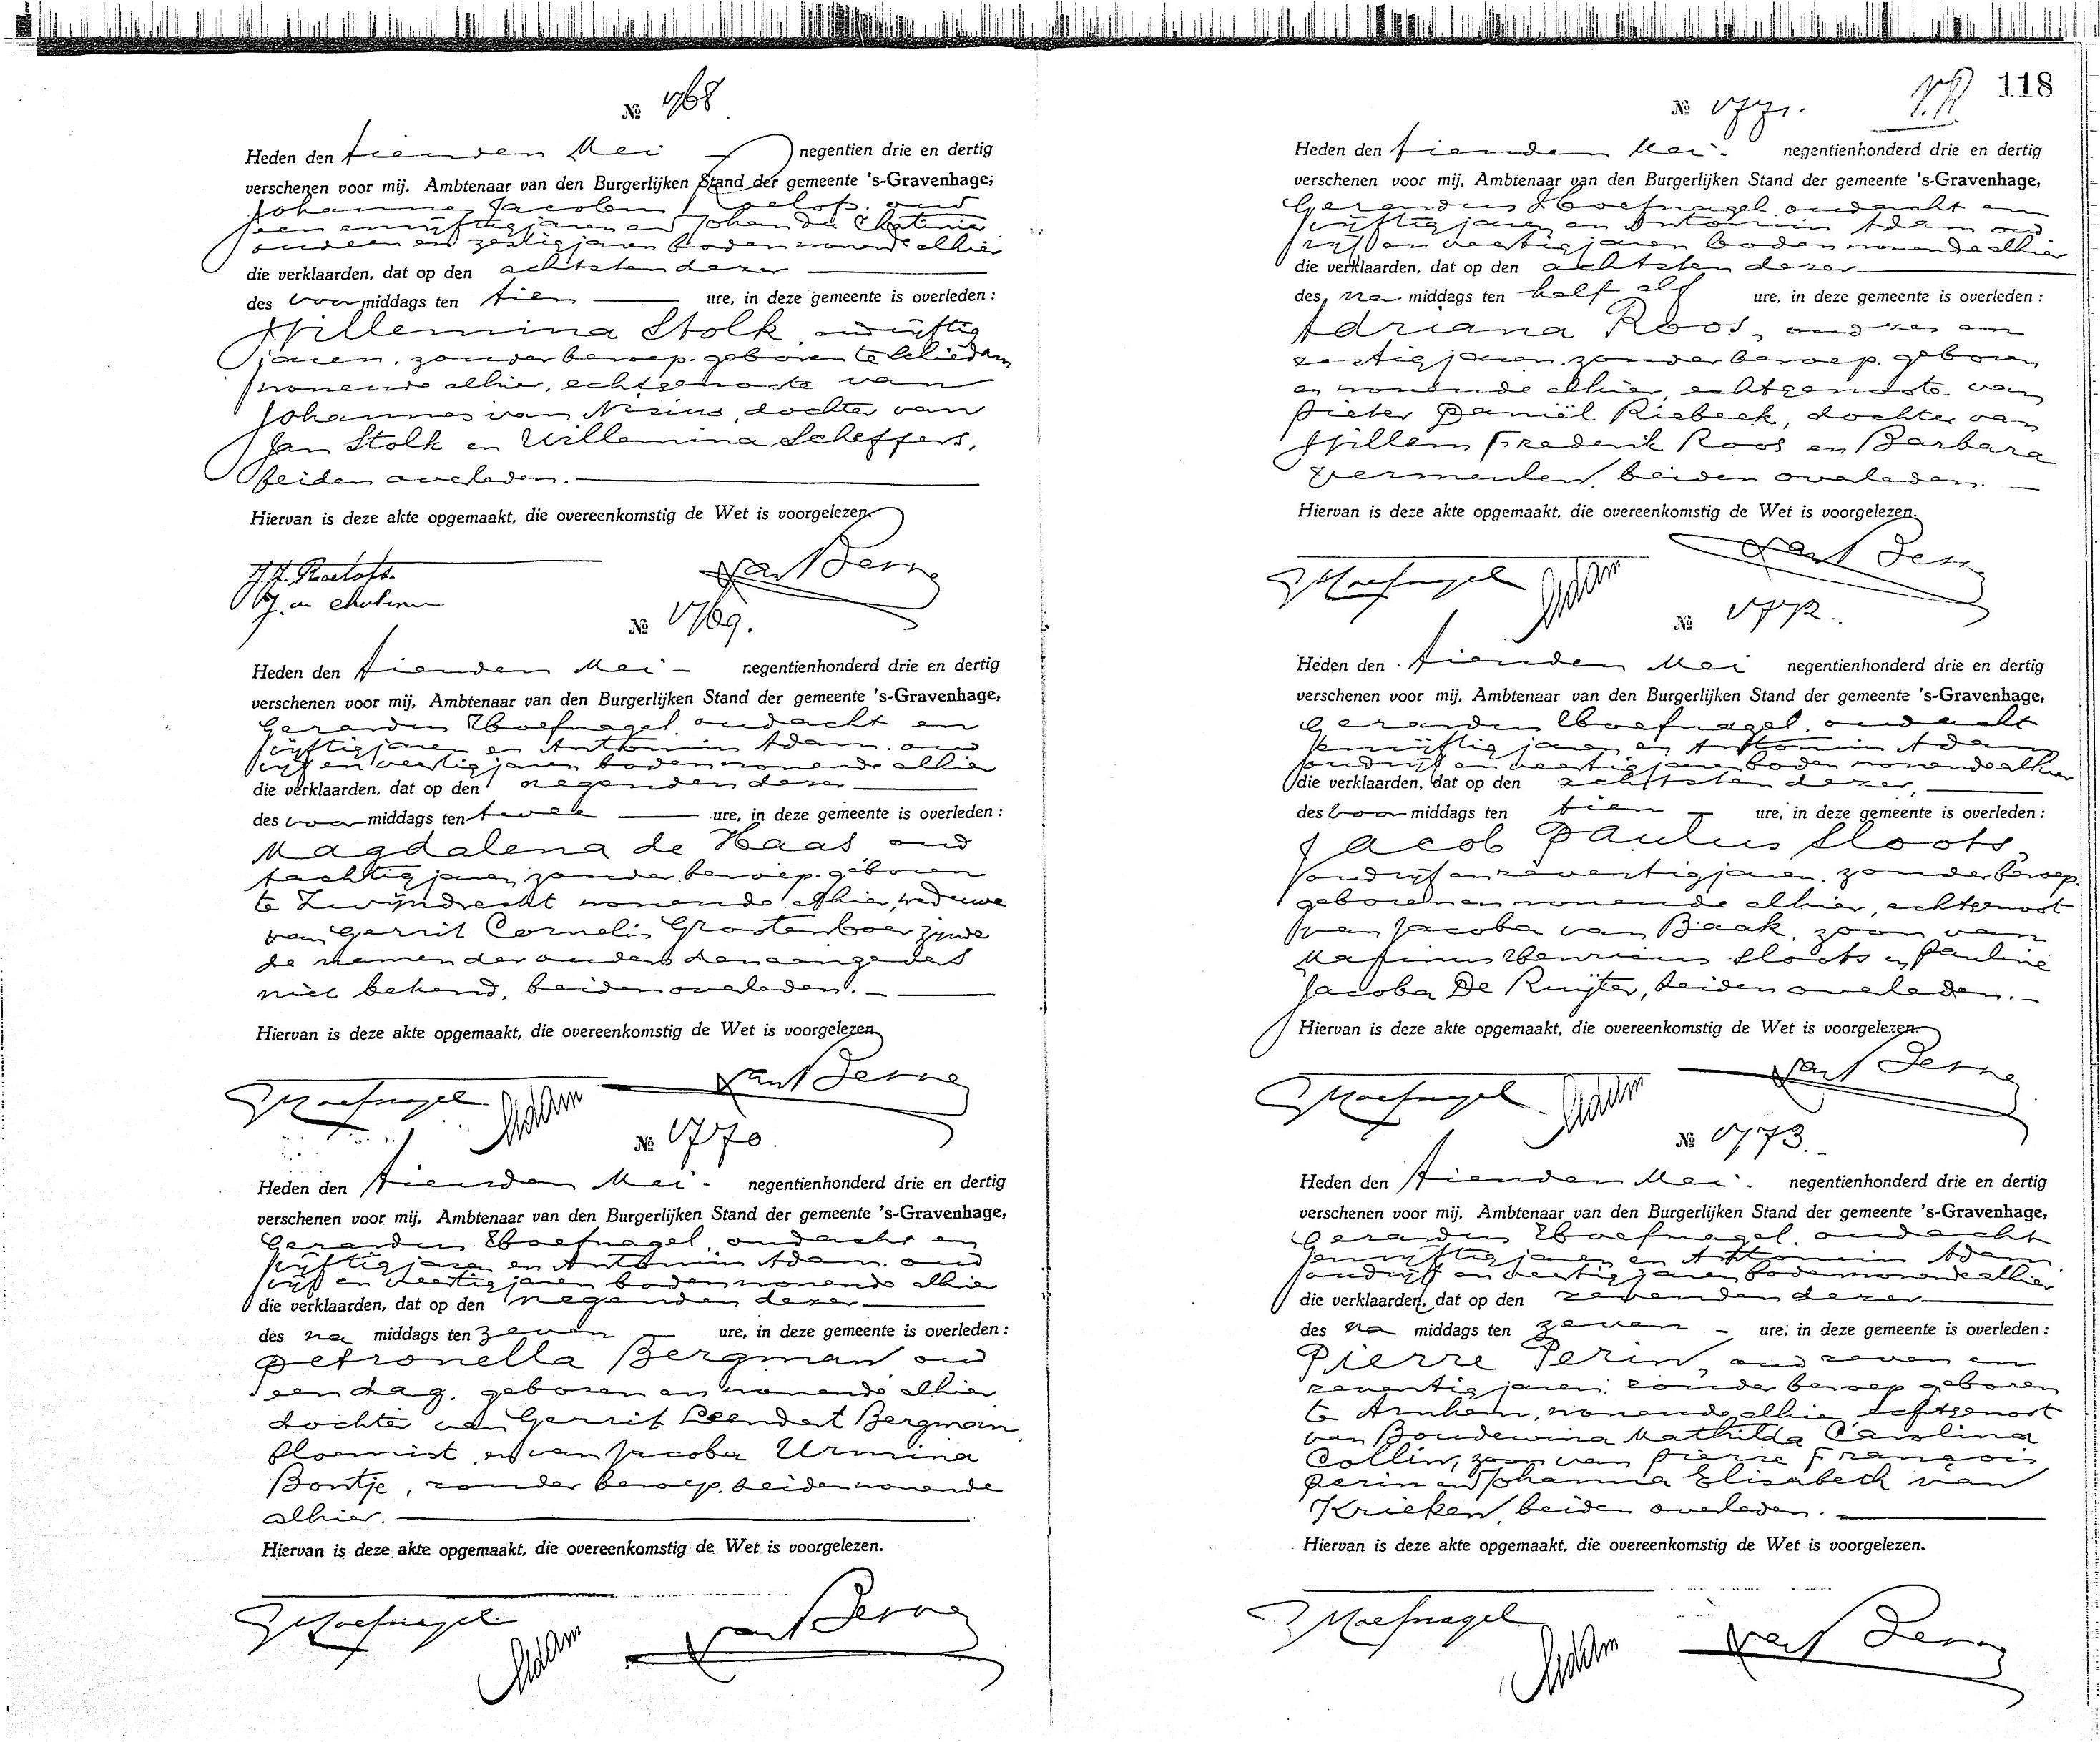 118
№ 1768.
Heden den tienden Mei negentien drie en dertig
verschenen voor mij, Ambtenaar van den Burgerlijken Stand der gemeente 's-Gravenhage,
Johannes Jacobus Roelofs, oud
een en vijftig jaren en Johan du Chatinier
oud een en zestig jaren boden wonende alhier
die verklaarden, dat op den achtsten dezer
des voormiddags ten tien ure, in deze gemeente is overleden:
Willemina Stolk, oud vijftig
jaren, zonder beroep, geboren te Schiedam
wonende alhier, echtgenoote van
Johannes van Nisius, dochter van
Jan Stolk en Willemina Scheffers,
beiden overleden.
Hiervan is deze akte opgemaakt, die overeenkomstig de Wet is voorgelezen.
J.J. Roelofs.
№ 1769.
Heden den tienden Mei negentienhonderd drie en dertig
verschenen voor mij, Ambtenaar van den Burgerlijken Stand der gemeente 's-Gravenhage,
Gerardus Hoefnagel, oud acht en
vijftig jaren en Antonin Adam, oud
vijf en veertig jaren boden wonende alhier
die verklaarden, dat op den negenden dezer
des voormiddags ten twee ure, in deze gemeente is overleden:
Magdalena de Haas oud
tachtig jaren, zonder beroep, geboren
te Zwijndrecht wonende alhier, weduwe
van Gerrit Cornelis Grootenboer zijnde
de namen der ouders den aangevers
niet bekend, beiden overleden.
Hiervan is deze akte opgemaakt, die overeenkomstig de Wet is voorgelezen
G Hoefnagel Adam
№ 1770.
Heden den tienden Mei. negentienhonderd drie en dertig
verschenen voor mij, Ambtenaar van den Burgerlijken Stand der gemeente 's-Gravenhage,
Gerardus Hoefnagel, oud acht en
vijftig jaren en Antonin Adam, oud
vijf en veertig jaren boden wonende alhier
die verklaarden, dat op den negenden dezer
des na middags ten zeven ure, in deze gemeente is overleden:
Petronella Bergman oud
een dag, geboren en wonende alhier
dochter van Gerrit Leendert Bergman,
bloemist, en van Jacoba Urmina
Bontje, zonder beroep, beiden wonende
alhier.
Hiervan is deze akte opgemaakt, die overeenkomstig de Wet is voorgelezen.
G Hoefnagel Adam
№ 1771.
Heden den tienden Mei. negentienhonderd drie en dertig
verschenen voor mij, Ambtenaar van den Burgerlijken Stand der gemeente 's-Gravenhage,
Gerardus Hoefnagel, oud acht en
vijftig jaren en Antonin Adam oud
vijf en veertig jaren boden wonende alhier
die verklaarden, dat op den achtsten dezer
des na middags ten half elf ure, in deze gemeente is overleden:
Adriana Roos, oud zes en
zestig jaren, zonder beroep, geboren
en wonende alhier, echtgenoote van
Pieter Daniël Riebeek, dochter van
Willem Frederik Roos en Barbara
Vermeulen, beiden overleden.
Hiervan is deze akte opgemaakt, die overeenkomstig de Wet is voorgelezen.
G Hoefnagel Adam
№ 1772.
Heden den tienden Mei negentienhonderd drie en dertig
verschenen voor mij, Ambtenaar van den Burgerlijken Stand der gemeente 's-Gravenhage,
Gerardus Hoefnagel, oud acht
en vijftig jaren en Antonin Adam
oud vijf en veertig jaren boden wonende alhier
die verklaarden, dat op den achtsten dezer,
des voor middags ten tien ure, in deze gemeente is overleden:
Jacob Paulus Sloots,
oud vijf en zeventig jaren, zonder beroep,
geboren en wonende alhier, echtgenoot
van Jacoba van Baak, zoon van
Marinus Henricus Sloots en Pauline
Jacoba De Ruijter, beiden overleden.
Hiervan is deze akte opgemaakt, die overeenkomstig de Wet is voorgelezen.
G Hoefnagel Adam
№ 1773.
Heden den tienden Mei. negentienhonderd drie en dertig
verschenen voor mij, Ambtenaar van den Burgerlijken Stand der gemeente 's-Gravenhage,
Gerardus Hoefnagel, oud acht
en vijftig jaren en Antonin Adam
oud vijf en veertig jaren boden wonende alhier
die verklaarden, dat op den zevenden dezer
des na middags ten zeven ure, in deze gemeente is overleden:
Pierre Perin, oud zeven en
zeventig jaren, zonder beroep geboren
te Arnhem, wonende alhier, echtgenoot
van Boudewina Mathilda Carolina
Collin, zoon van Pierre François
Perin en Johanna Elisabeth van
Krieken, beiden overleden.
Hiervan is deze akte opgemaakt, die overeenkomstig de Wet is voorgelezen.
G Hoefnagel Adam